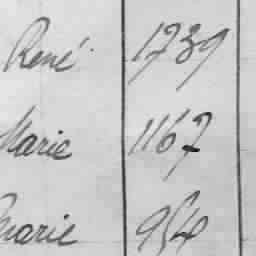 René 1739
Marie 1167
Marie 954